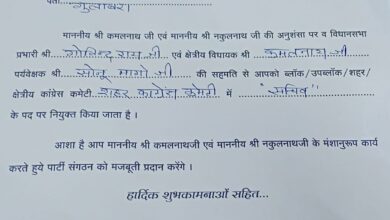 पता गुलाबरा
माननीय श्री कमलनाथ जी एवं माननीय श्री नकुलनाथ जी की अनुशंसा पर व विधानसभा
प्रभारी श्री गोविन्द राय जी एवं क्षेत्रीय विधायक श्री कमलनाथ जी
पर्यवेक्षक श्री सोनू मागो जी की सहमति से आपको ब्लॉक/उपब्लॉक/शहर/
क्षेत्रीय कांग्रेस कमेटी शहर कांग्रेस कमेटी में "सचिव"
के पद पर नियुक्त किया जाता है ।
आशा है आप माननीय श्री कमलनाथजी एवं माननीय श्री नकुलनाथजी के मंशानुरूप कार्य
करते हुये पार्टी संगठन को मजबूती प्रदान करेंगे ।
हार्दिक शुभकामनाओं सहित...